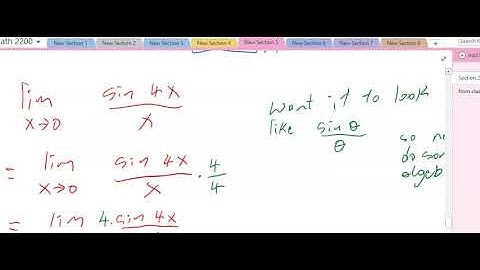 ath 2200
New Section 1 New Section 2 New Section 3 New Section 4 New Section 5 New Section 6 New Section 7 New Section 8
lim x→0 sin 4x / x
want it to look
like sin θ / θ
so
do
= lim x→0 sin 4x / x · 4/4
= lim 4. sin 4x